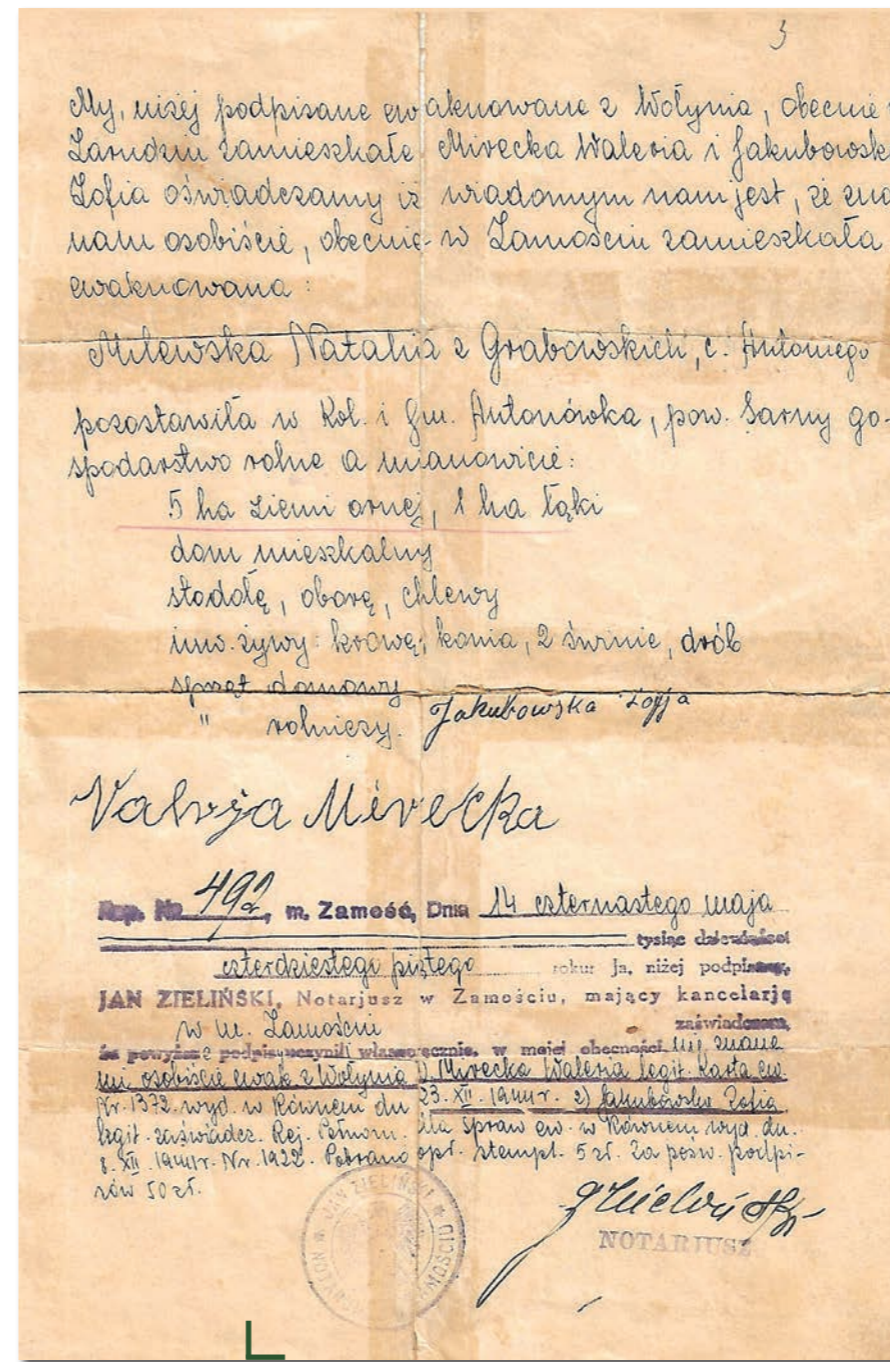 3
My, niżej podpisane ewakuowane z Wołynia, obecnie
Zarudziu zamieszkałe Mirecka Waleria i Jakubowsk
Zofia oświadczamy iż wiadomym nam jest, że zna
nam osobiście, obecnie w Zamościu zamieszkała
ewakuowana:
Milewska Natalia z Grabowskich, c. Antoniego
pozostawiła w Kol. i Gm. Antonówka, pow. Sarny go-
spodarstwo rolne a mianowicie:
5 ha ziemi ornej, 1 ha łąki
dom mieszkalny
stodołę, oborę, chlewy
inw. żywy: krowę, konia, 2 świnie, drób
sprzęt domowy
" rolniczy. Jakubowska Zofja
Valerja Mirecka
Rep. No 492, m. Zamość, Dnia 14 czternastego maja
tysiąc dziewięćset
czterdziestego piątego roku: Ja, niżej podpisany,
JAN ZIELIŃSKI, Notarjusz w Zamościu, mający kancelarję
w m. Zamościu zaświadczam,
że powyższe podpisy uczynili własnoręcznie, w mojej obecności nie znane
mi osobiście ewak. z Wołynia 1) Mirecka Waleria legit. Karta ew.
Nr. 1372. wyd. w Równem dn 23. XII. 1944 r. 2) Jakubowska Zofia
legit. zaświadcz. Rej. Pełnom. dla Spraw ew. w Równem wyd. dn.
8. XII. 1944 r. Nr. 1922. Pobrano opł. stempl. 5 zł. Za pośw. podpi-
sów 50 zł.
JAN ZIELIŃSKI
NOTARJUSZ